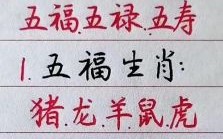 五福.五禄.五寿
1.五福生肖:
猪.龙.羊.鼠.虎